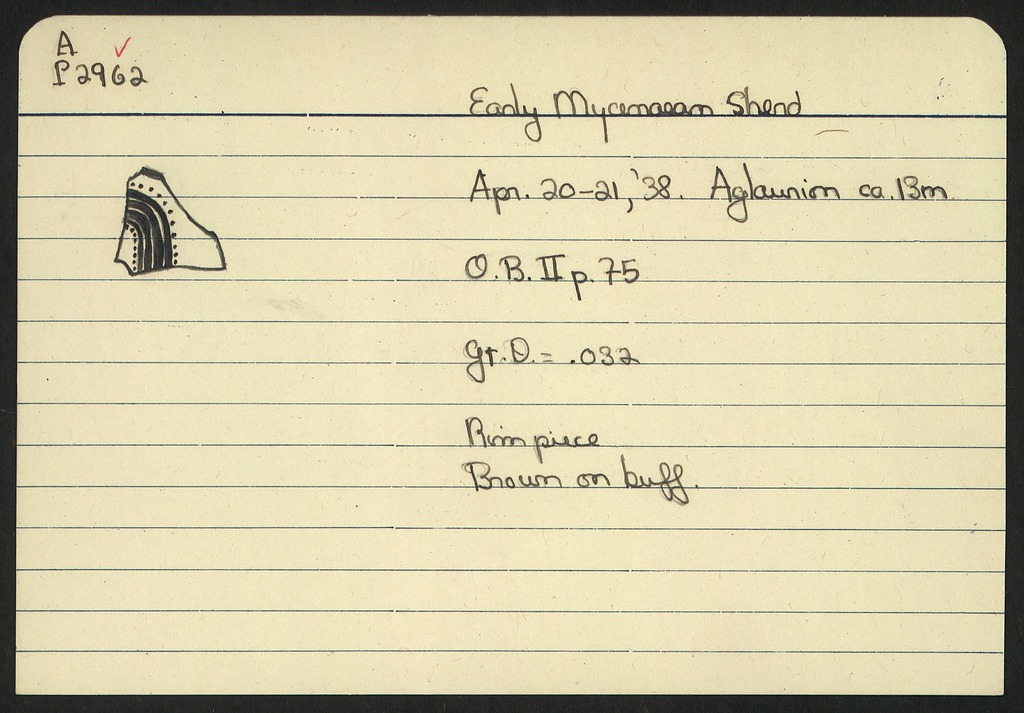 A ✓
P 2962
Early Mycenaean Sherd
Apr. 20-21, '38. Aglaurion ca. 13m
O.B. II p. 75
Gr. D. = .032
Rim piece
Brown on buff.